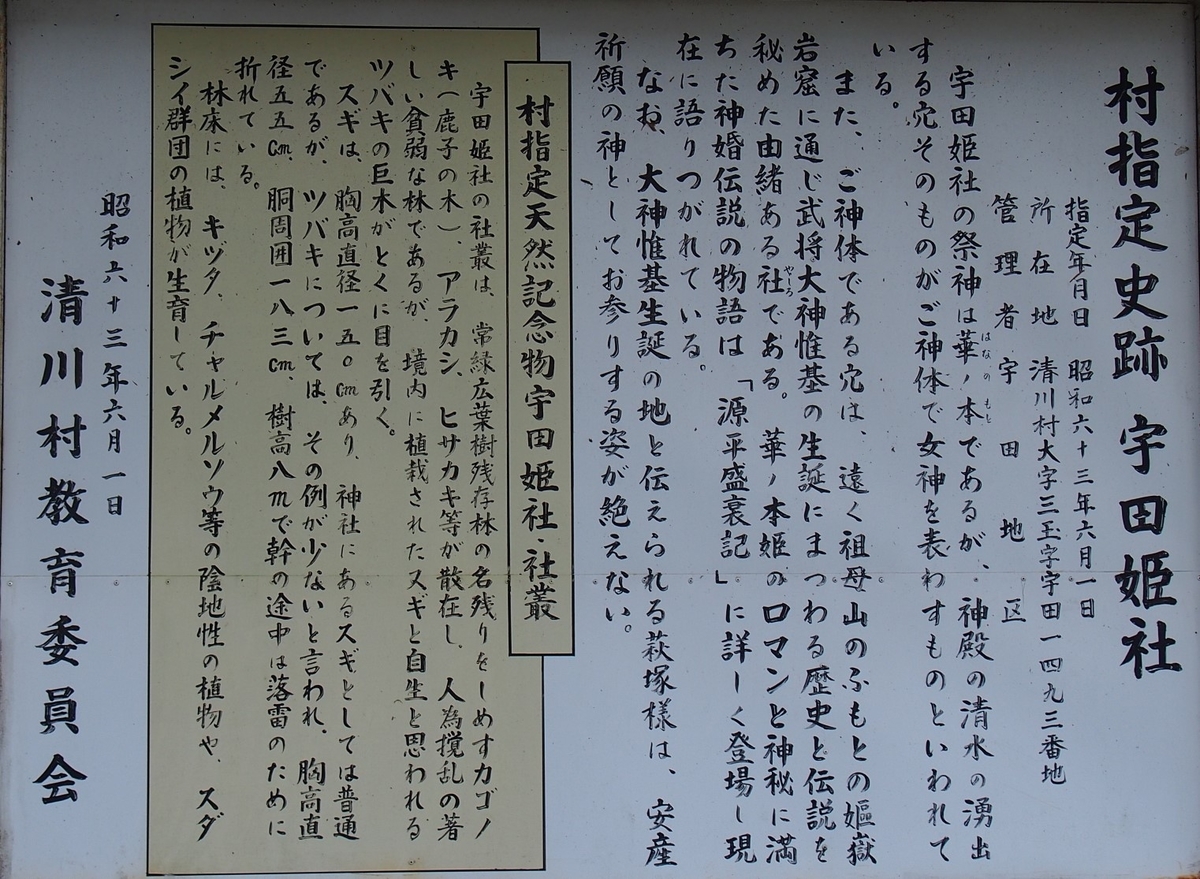 村指定史跡 宇田姫社
指定年月日 昭和六十三年六月一日
所在地 清川村大字三玉字宇田一四九三番地
管理者 宇田地区
宇田姫社の祭神は華ノ本であるが、神殿の清水の湧出
はなのもと
する穴そのものがご神体で女神を表わすものといわれて
いる。
また、ご神体である穴は、遠く祖母山のふもとの嫗嶽
岩窟に通じ武将大神惟基の生誕にまつわる歴史と伝説を
秘めた由緒ある社である。華ノ本姫のロマンと神秘に満
やしろ
ちた神婚伝説の物語は「源平盛衰記」に詳しく登場し現
在に語りつがれている。
なお、大神惟基生誕の地と伝えられる萩塚様は、安産
祈願の神としてお参りする姿が絶えない。
村指定天然記念物宇田姫社・社叢
宇田姫社の社叢は、常緑広葉樹残存林の名残りをしめすカゴノ
キ(鹿子の木)、アラカシ、ヒサカキ等が散在し、人為撹乱の著
しい貧弱な林であるが、境内に植栽されたスギと自生と思われる
ツバキの巨木がとくに目を引く。
スギは、胸高直径一五〇cmあり、神社にあるスギとしては普通
であるが、ツバキについては、その例が少ないと言われ、胸高直
径五五cm、胴周囲一八三cm、樹高八mで幹の途中は落雷のために
折れている。
林床には、キヅタ、チャルメルソウ等の陰地性の植物や、スダ
シイ群団の植物が生育している。
昭和六十三年六月一日
清川村教育委員会